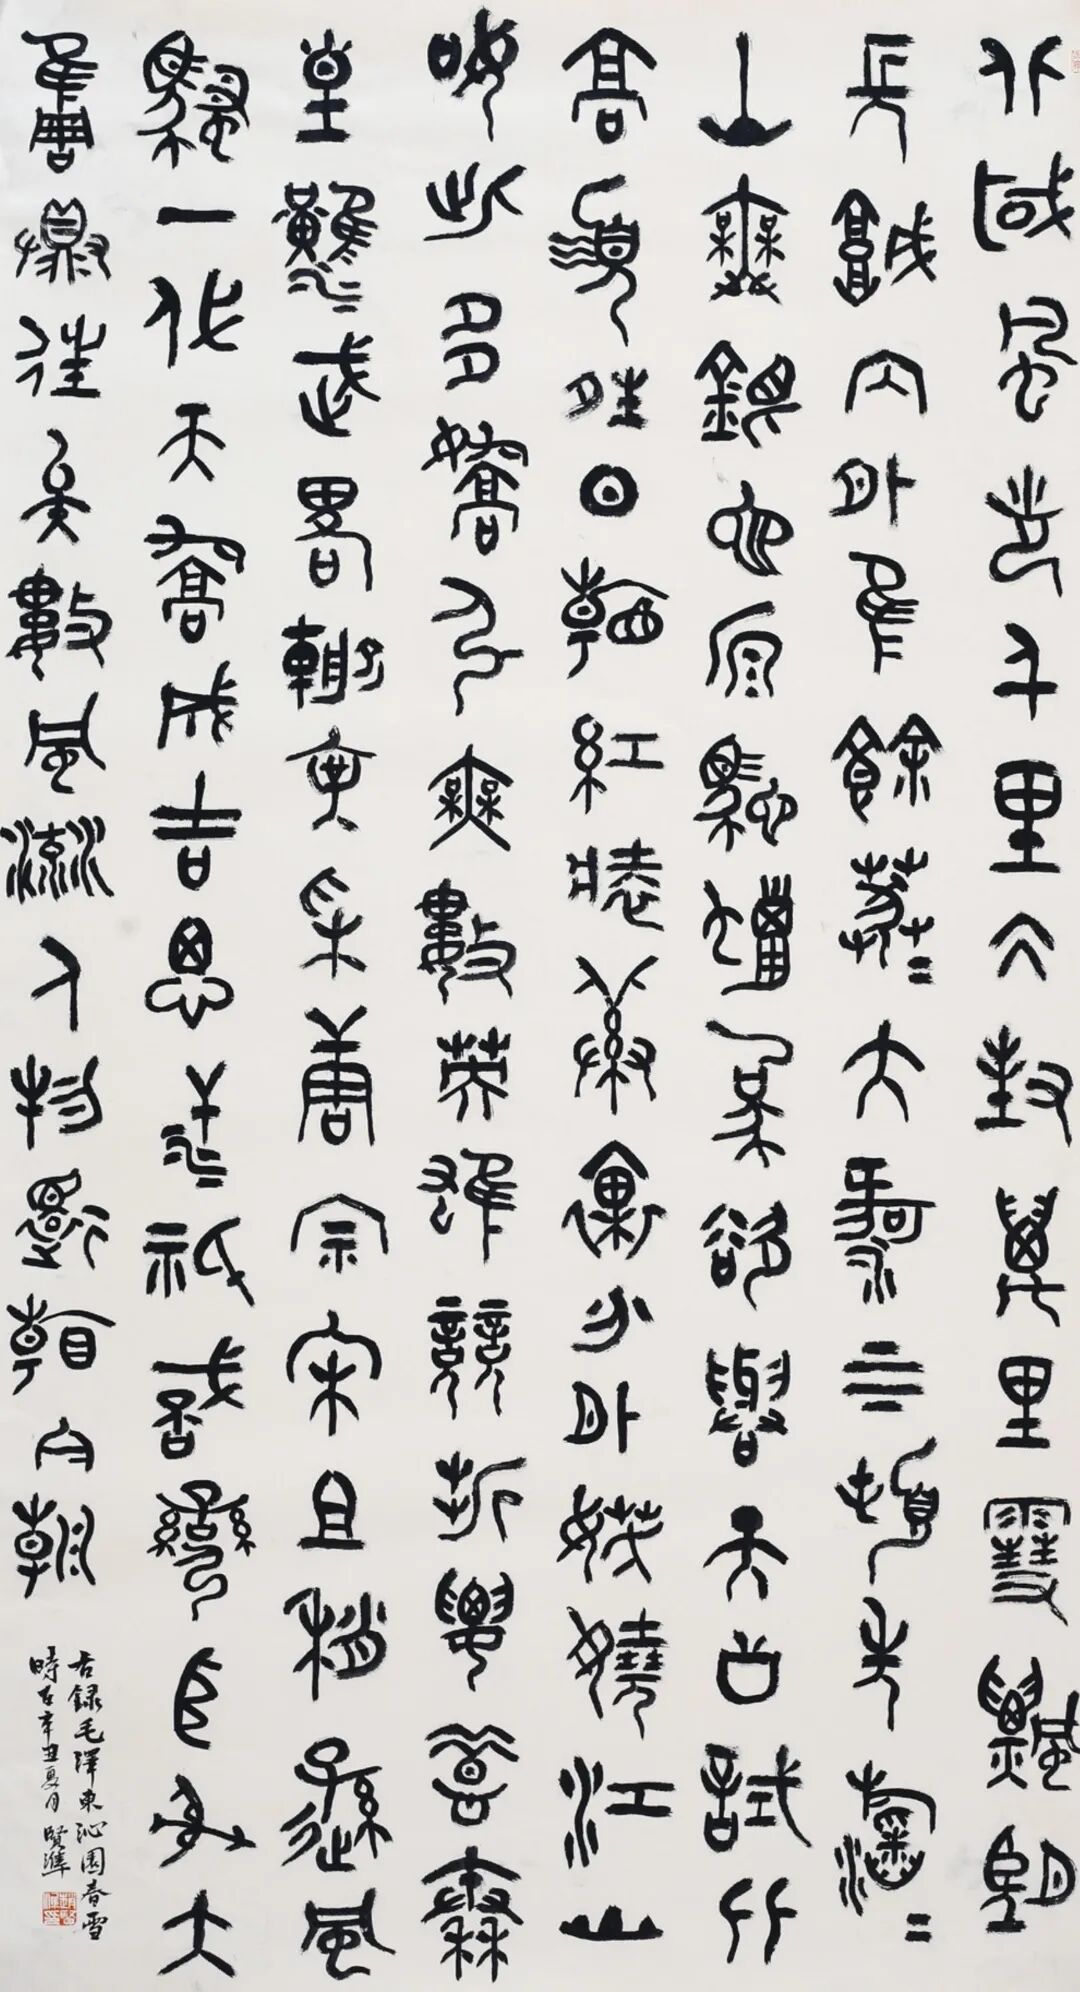 北國風光千里冰封萬里雪飄望
長城內外惟餘莽莽大河上下頓失滔滔
山舞銀蛇原馳蠟象欲與天公試比
高須晴日看紅裝素裹分外妖嬈江山
如此多嬌引無數英雄競折腰惜秦
皇漢武略輸文采唐宗宋祖稍遜風
騷一代天驕成吉思汗祇識彎弓射大
雕俱往矣數風流人物還看今朝
右錄毛澤東沁園春雪
時在辛丑夏月 賢準